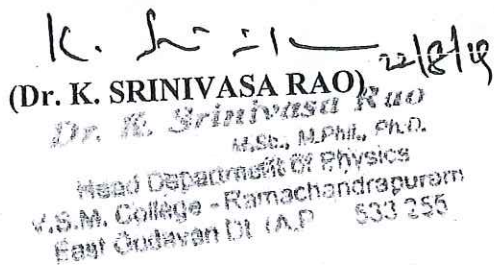 K. 22/8/19
(Dr. K. SRINIVASA RAO)
Dr. K. Srinivasa Rao
M.Sc., M.Phil., Ph.D.
Head Department of Physics
V.S.M. College - Ramachandrapuram
East Godavari Dt. (A.P 533 255